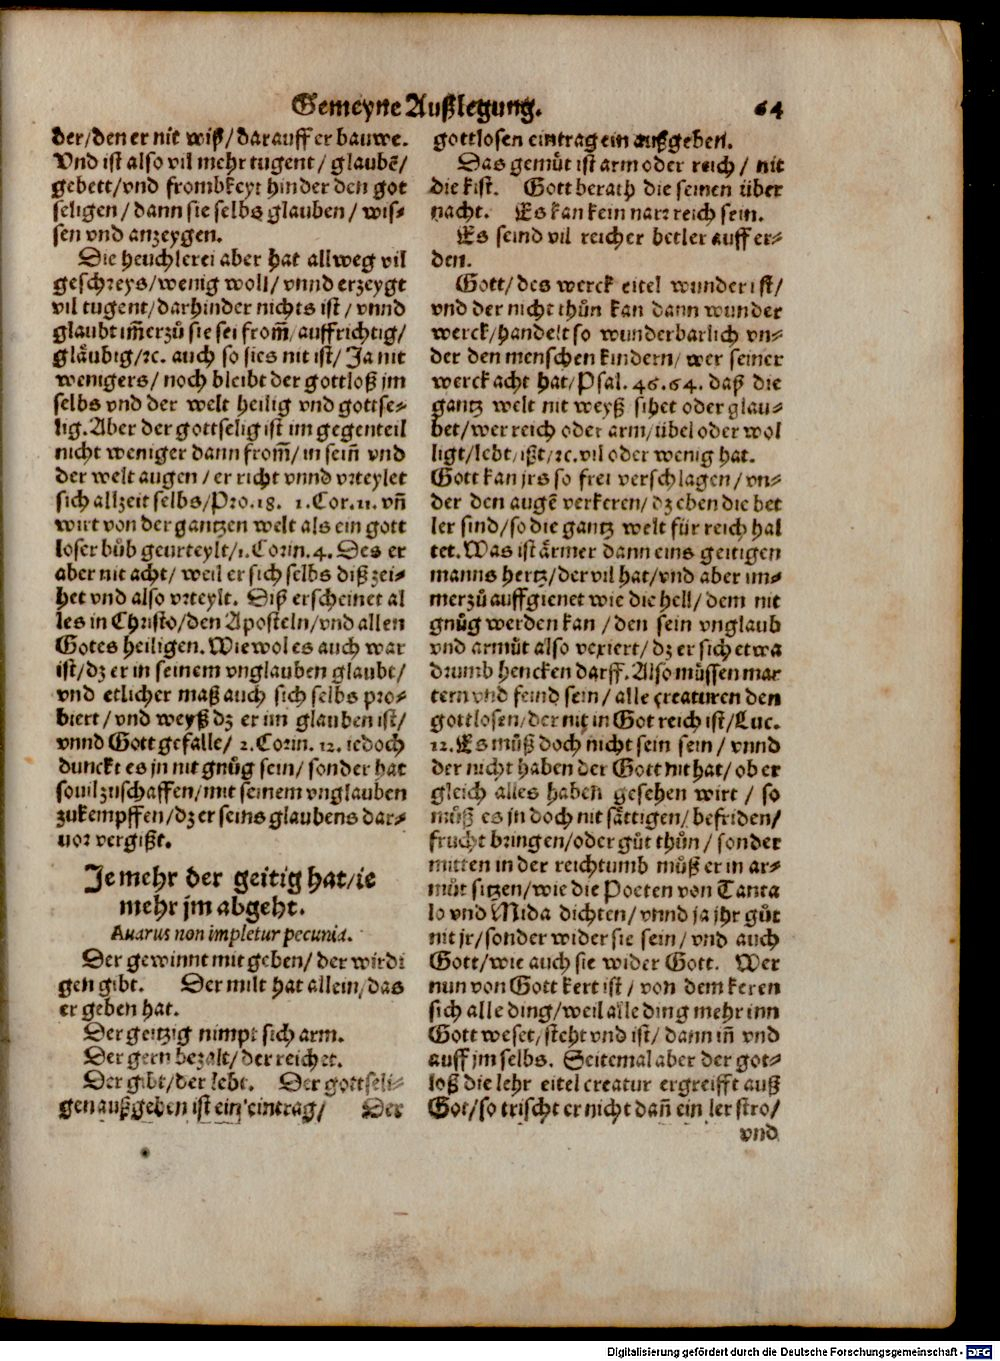 Gemeyne Außlegung. 64
der/den er nit wiß/darauff er bauwe.
Vnd ist also vil mehr tugent/ glaubē/
gebett/vnd frombkeyt hinder den got
seligen/ dann sie selbs glauben/ wis⸗
sen vnd anzeygen.
Die heuchlerei aber hat allweg vil
geschreys/wenig woll/vnnd erzeygt
vil tugent/darhinder nichts ist/vnnd
glaubt im̄erzů sie sei from̄/auffrichtig/
glåubig/ꝛc. auch so sies nit ist/ Ja nit
wenigers/ noch bleibt der gottloß jm
selbs vnd der welt heilig vnd gottse⸗
lig. Aber der gottselig ist im gegenteil
nicht weniger dann from̄/in sein̄ vnd
der welt augen/ er richt vnnd vrteylet
sich allzeit selbs/Pro.18. 1.Cor.11. vn̄
wirt von der gantzen welt als ein gott
loser bůb geurteylt/1.Corin.4. Des er
aber nit acht/ weil er sich selbs diß zei⸗
het vnd also vrteylt. Diß erscheinet al
les in Christo/den Aposteln/vnd allen
Gotes heiligen. Wiewol es auch war
ist/dz er in seinem vnglauben glaubt/
vnd etlicher maß auch sich selbs pro⸗
biert/vnd weyß dz er im glauben ist/
vnnd Gott gefalle/ 2.Corin. 12. iedoch
dunckt es jn nit gnůg sein/ sonder hat
souil zuschaffen/mit seinem vnglauben
zukempffen/dz er seins glaubens dar⸗
uor vergißt.
Je mehr der geitig hat/ie
mehr jm abgeht.
Auarus non impletur pecunia.
Der gewinnt mit geben/ der wirdi
gen gibt. Der milt hat allein/das
er geben hat.
Der geitzig nimpt sich arm.
Der gern bezalt/der reichet.
Der gibt/der lebt. Der gottseli⸗
gen außgeben ist ein eintrag/ Der
gottlosen eintrag ein außgeben.
Das gemůt ist arm oder reich/ nit
die kist. Gott berath die seinen über
nacht. Es kan kein narr reich sein.
Es seind vil reicher betler auff er⸗
den.
Gott/des werck eitel wunder ist/
vnd der nicht thůn kan dann wunder
werck/handelt so wunderbarlich vn⸗
der den menschen kindern/wer seiner
werck acht hat/Psal.46.64. daß die
gantz welt nit weyß sihet oder glau⸗
bet/wer reich oder arm/übel oder wol
ligt/lebt/ißt/ꝛc.vil oder wenig hat.
Gott kan jrs so frei verschlagen/vn⸗
der den augē verkeren/dz eben die bet
ler sind/so die gantz welt für reich hal
tet. Was ist årmer dann eins geitigen
manns hertz/der vil hat/vnd aber im⸗
merzů auffgienet wie die hell/dem nit
gnůg werden kan/den sein vnglaub
vnd armůt also vexiert/dz er sich etwa
drumb hencken darff. Also můssen mar
tern vnd feind sein/alle creaturen den
gottlosen/der nit in Got reich ist/Luc.
12. Es můß doch nicht sein sein/vnnd
der nicht haben der Gott nit hat/ob er
gleich alles haben gesehen wirt/ so
můß es jn doch nit såttigen/befriden/
frucht bringen/oder gůt thůn/sonder
mitten in der reichtumb můß er in ar⸗
můt sitzen/wie die Poeten von Tanta
lo vnd Mida dichten/vnnd ja jhr gůt
nit jr/sonder wider sie sein/vnd auch
Gott/wie auch sie wider Gott. Wer
nun von Gott kert ist/von dem keren
sich alle ding/weil alle ding mehr inn
Gott weset/steht vnd ist/dann in̄ vnd
auff jm selbs. Seitemal aber der got⸗
loß die lehr eitel creatur ergreifft auß
Got/so trischt er nicht dan̄ ein ler stro/
vnd
Digitalisierung gefördert durch die Deutsche Forschungsgemeinschaft - DFG